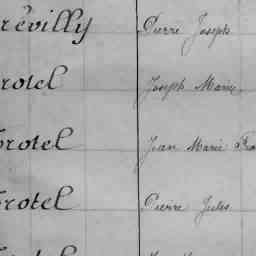 révilly Pierre Joseph
rotel Joseph Marie
rotel Jean Marie
rotel Pierre Jules